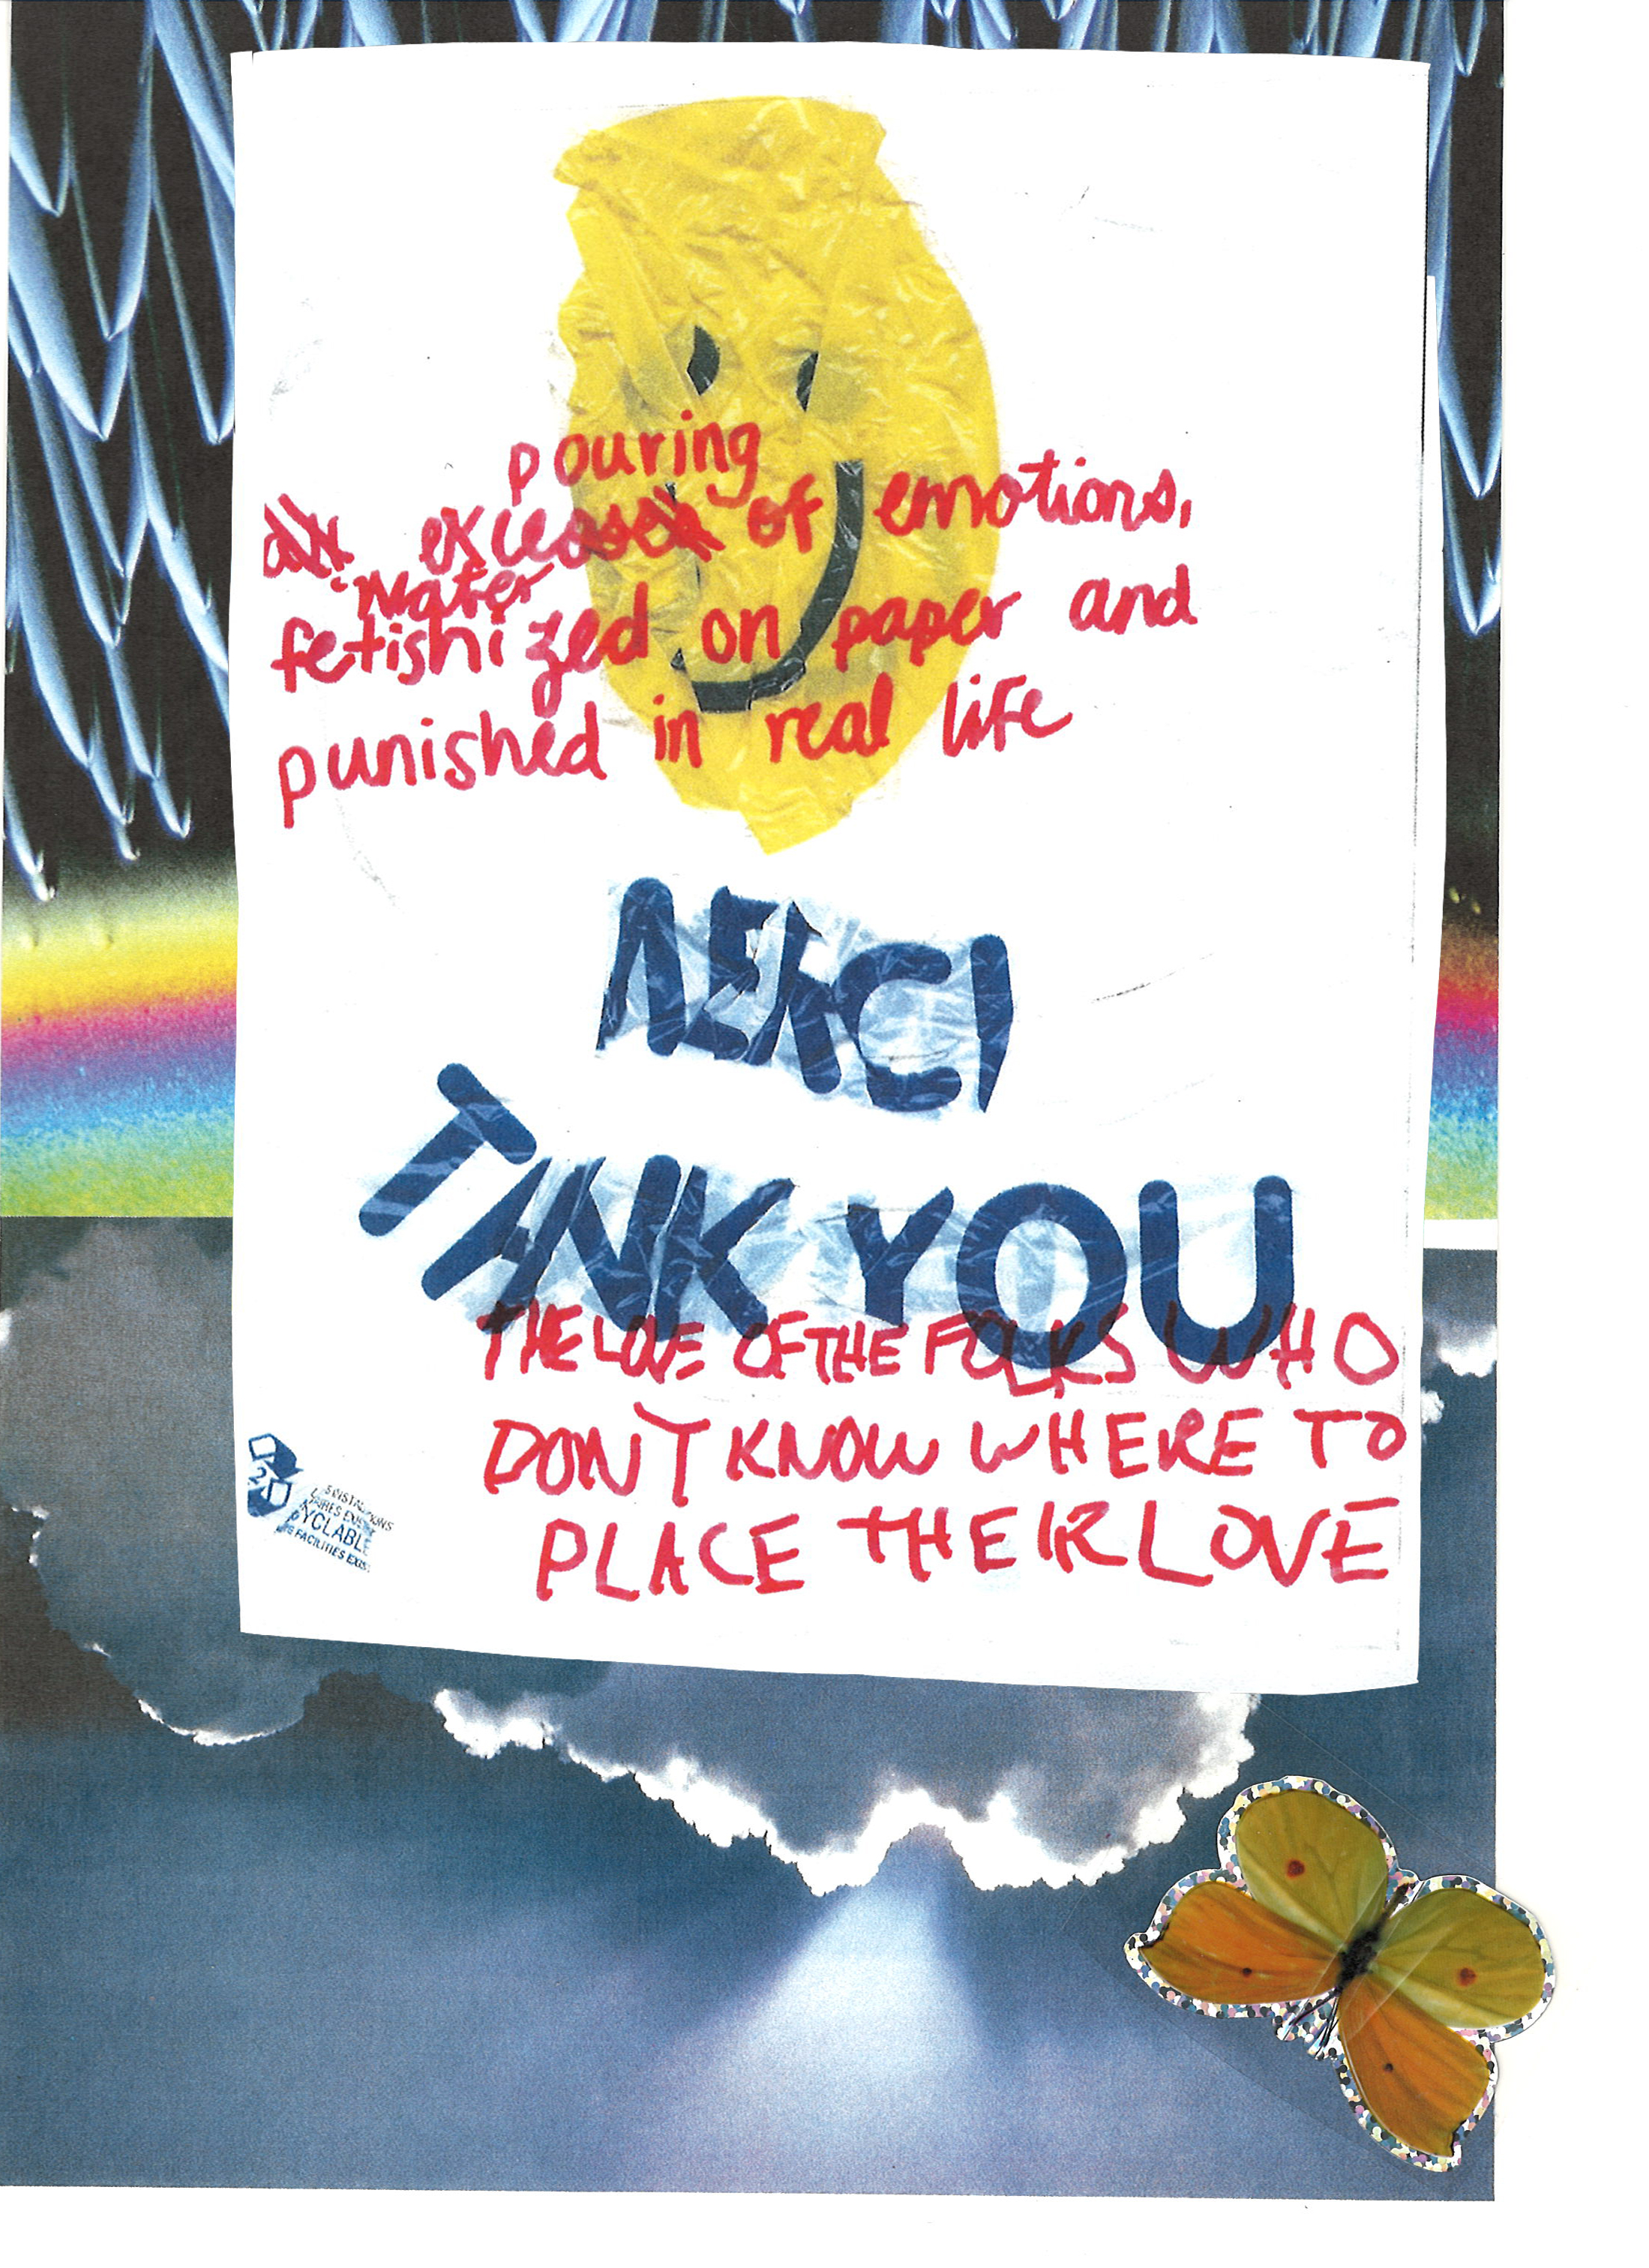 pouring
excess of emotions,
water
fetishized on paper and
punished in real life
MERCI
THANK YOU
THE LOVE OF THE FOLKS WHO
DON'T KNOW WHERE TO
PLACE THEIR LOVE
2
YCLABLE
FACILITIES EXIS